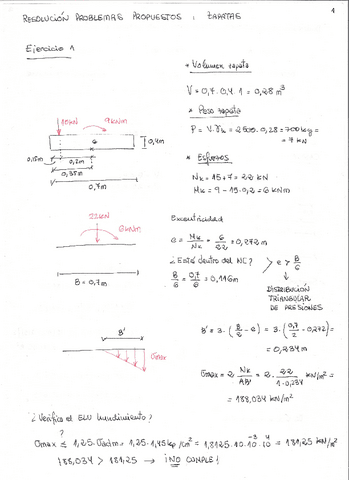 RESOLUCIÓN PROBLEMAS PROPUESTOS : ZAPATAS
1
Ejercicio 1
* Volumen zapata
V = 0,7 · 0,4 · 1 = 0,28 m³
* Peso zapata
P = V·γk = 2500 · 0,28 = 700 kg =
= 7 kN
* Esfuerzos
Nk = 15 + 7 = 22 kN
Mk = 9 - 15·0,2 = 6 kNm
15kN
9kNm
G
0,4m
0,15m
0,2m
0,35m
0,7m
22kN
6kNm
B = 0,7m
Excentricidad
e = Mk/Nk = 6/22 = 0,272 m
¿Está dentro del NC?
B/6 = 0,7/6 = 0,116m
e > B/6
DISTRIBUCIÓN
TRIANGULAR
DE PRESIONES
B' = 3 · (B/2 - e) = 3 · (0,7/2 - 0,272) =
= 0,234 m
B'
σmax
σmax = 2 · Nk/AB' = 2 · 22/1·0,234 kN/m² =
= 188,034 kN/m²
¿Verifica el ELU hundimiento?
?
σmax ≤ 1,25 · σadm = 1,25 · 1,45 kp/cm² = 1,8125 · 10 · 10⁻³ · 10⁴ = 181,25 kN/m²
188,034 > 181,25 → ¡NO CUMPLE!